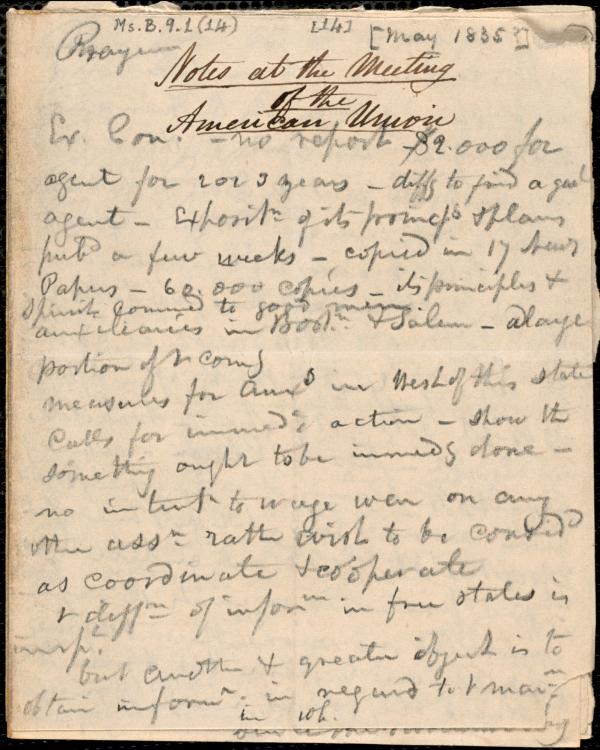 Ms.B.9.1(14) [14] [May 1835?]
Prayer
Notes at the Meeting
of the
American Union
Ex. Com. - no report - $2.000 for
agent for 2 or 3 years - diffy to find a good
agent - Expositn of its princips & plans
pubd a few weeks - copied in 17 News
Papers - 60.000 copies - its principles &
spirit commd to good men
auxiliaries in Bostn & Salem - a large
portion of
measures for Auxs in West of this state
Calls for immede action - show tht
something ought to be immedy done -
no intentn to wage war on any
other assn rather wish to be considd
as coordinate & cooperate
t diffn of inform in free states is
impt
but another & greater object is to
obtain informn in regard to t mann
in wh.